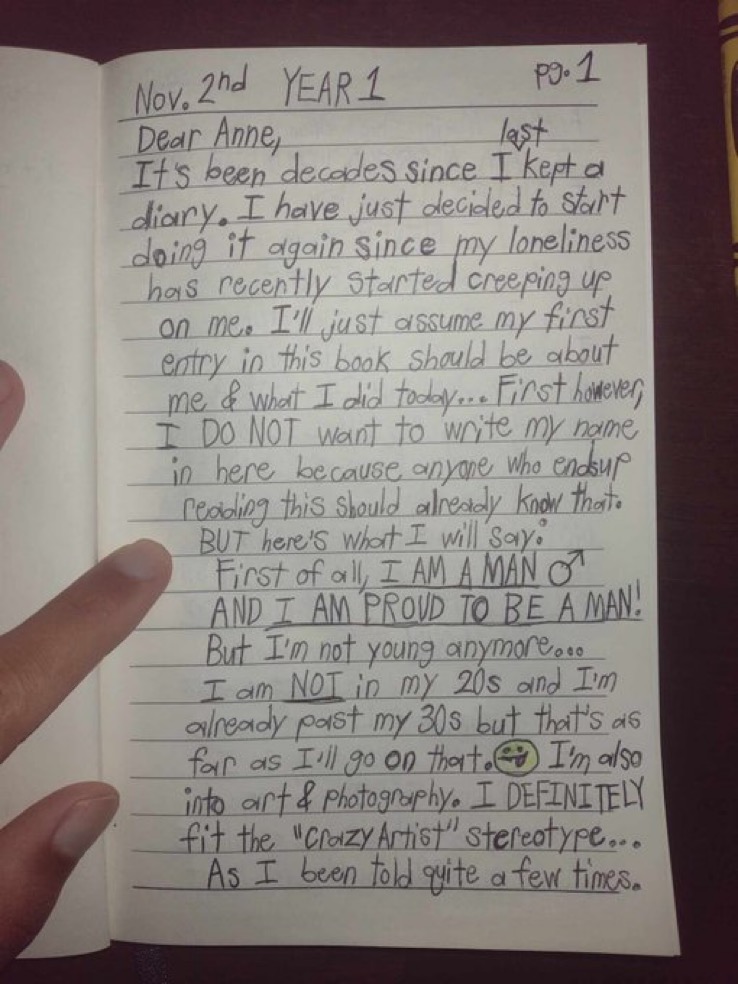 Nov. 2nd YEAR 1 pg. 1
Dear Anne,
It's been decades since I last kept a
diary. I have just decided to start
doing it again since my loneliness
has recently started creeping up
on me. I'll just assume my first
entry in this book should be about
me & what I did today... First however,
I DO NOT want to write my name
in here because anyone who ends up
reading this should already know that.
BUT here's what I will say:
First of all, I AM A MAN ♂
AND I AM PROUD TO BE A MAN!
But I'm not young anymore....
I am NOT in my 20s and I'm
already past my 30s but that's as
far as I'll go on that. I'm also
into art & photography. I DEFINITELY
fit the "Crazy Artist" stereotype...
As I been told quite a few times.